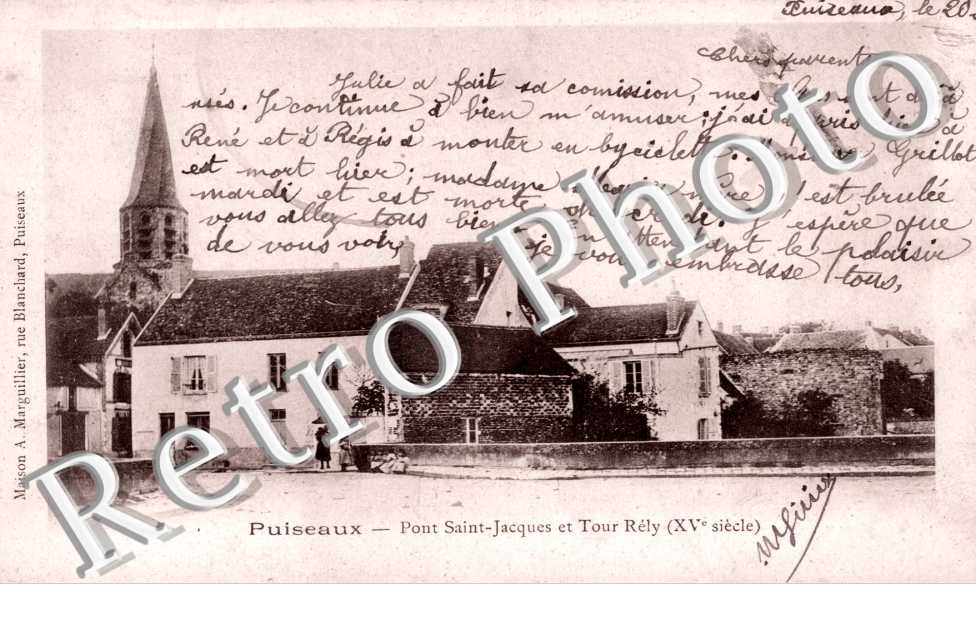 Puiseaux, le 20
Chers parents
Julie a fait sa comission, mes
nsés. Je continue à bien m'amuser; j'ai appris hier à
René et à Régis à monter en byciclette. Monsieur Grillot
est mort hier; madame mère s'est brulée
mardi et est morte J'espère que
vous allez tous bien
de vous voir, je vous embrasse tous,
en attendant le plaisir
Maison A. Marguillier, rue Blanchard, Puiseaux
PUISEAUX — Pont Saint-Jacques et Tour Rély (XVe siècle)
Retro Photo